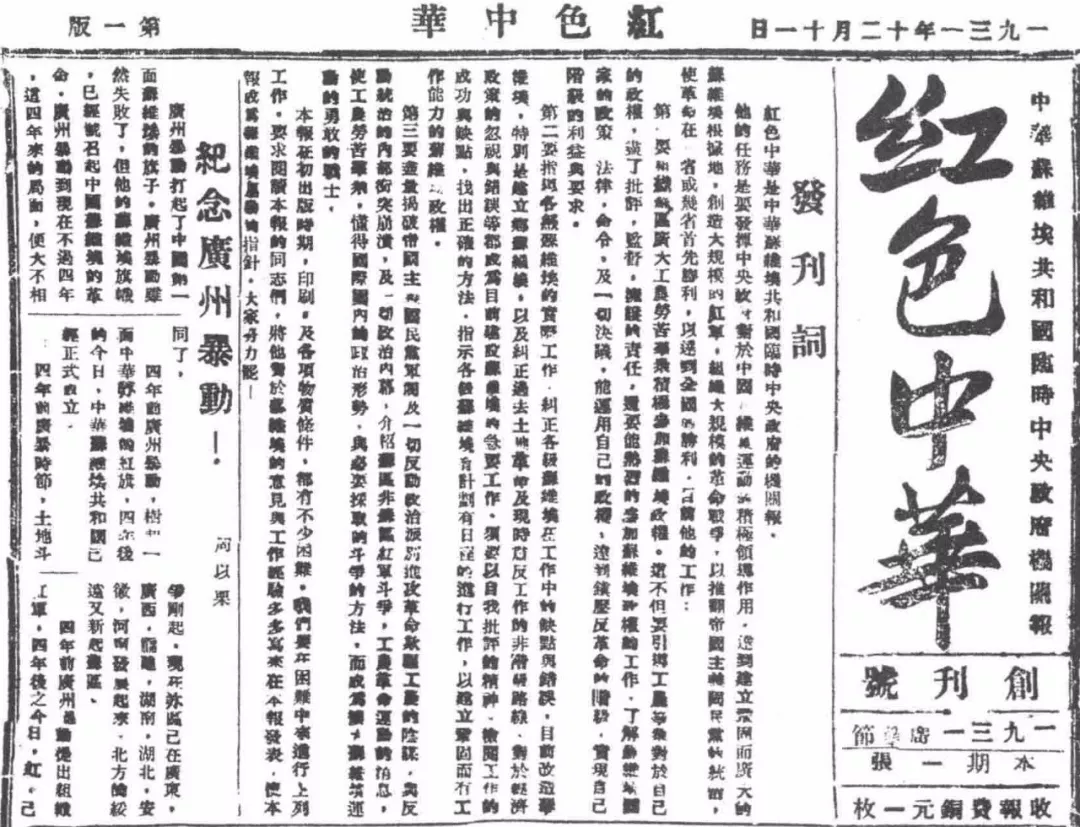 一九三一年十二月十一日
紅色中華
第一版
中華蘇維埃共和國臨時中央政府機關報
紅色中華
創刊號
一九三一廣暴節
本期一張
收報費銅元一枚
發刊詞
紅色中華是中華蘇維埃共和國臨時中央政府的機關報,
他的任務是要發揮中央政府對於中國蘇維埃運動的積極領導作用,達到建立鞏固而廣大的
蘇維埃根據地,創造大規模的紅軍,組織大規模的革命戰爭,以推翻帝國主義國民黨的統治,
使革命在一省或幾省首先勝利,以達到全國的勝利,目前他的工作:
第一要組織蘇區廣大工農勞苦羣衆積極參加蘇維埃政權。這不但要引導工農羣衆對於自己
的政權,盡了批評,監督,擁護的責任,還要能熱烈的參加蘇維埃政權的工作,了解蘇維埃國
家的政策,法律,命令,及一切決議,能運用自己的政權,達到鎮壓反革命的階級,實現自己
階級的利益與要求。
第二要指導各級蘇維埃的實際工作,糾正各級蘇維埃在工作中的缺點與錯誤,目前改造
選,特別是建立鄉蘇組織,以及糾正過去土地革命及現時肅反工作的非階級路線,對於經濟
政策的忽視與錯誤等都成爲目前建設蘇維埃的急要工作,須要以自我批評的精神,檢閱工作的
成功與缺點,找出正確的方法,指示各級蘇維埃有計劃有日程的進行工作,以建立鞏固而有工
作能力的蘇維埃政權。
第三要盡量揭破帝國主義國民黨軍閥及一切反動政治派別進攻革命欺騙工農的陰謀,與反
動統治的內部衝突崩潰,及一切政治內幕,介紹蘇區非蘇區紅軍斗爭,工農革命運動的消息,
使工農勞苦羣衆,懂得國際國內的政治形勢,與必要採取的斗爭的方法,而成爲擴大蘇維埃運
動的勇敢的戰士。
本報在初出版時期,印刷,及各項物質條件,都有不少困難,我們要在困難中來進行上列
工作,要求閱讀本報的同志們,將他對於蘇維埃的意見與工作經驗多多寫來在本報發表,使本
報成爲蘇維埃運動的指針,大家努力罷—
紀念廣州暴動—。
周以栗
廣州暴動打起了中國第一
面蘇維埃的旗子。廣州暴動雖
然失敗了,但他的蘇維埃旗幟
,已經號召起中國蘇維埃的革
命,廣州暴動到現在不過四年
,這四年來的局面,便大不相
同了,
四年前廣州暴動,樹起一
面中華蘇維埃的紅旗,四年後
的今日,中華蘇維埃共和國已
經正式成立。
四年前廣暴時節,土地斗
爭剛起,現在蘇區已在廣東,
廣西,福建,湖南,湖北,安
徽,河南發展起來,北方的綏
遠又新起蘇區、
四年前廣州暴動僅出組織
紅軍,四年後之今日,紅軍已